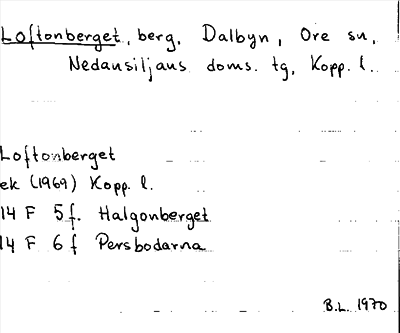 Loftonberget, berg, Dalbyn, Ore sn,
Nedansiljans doms. tg, Kopp. l.
Loftonberget
ek (1969) Kopp. l.
14 F 5 f. Halgonberget
14 F 6 f Persbodarna
B.L. 1970